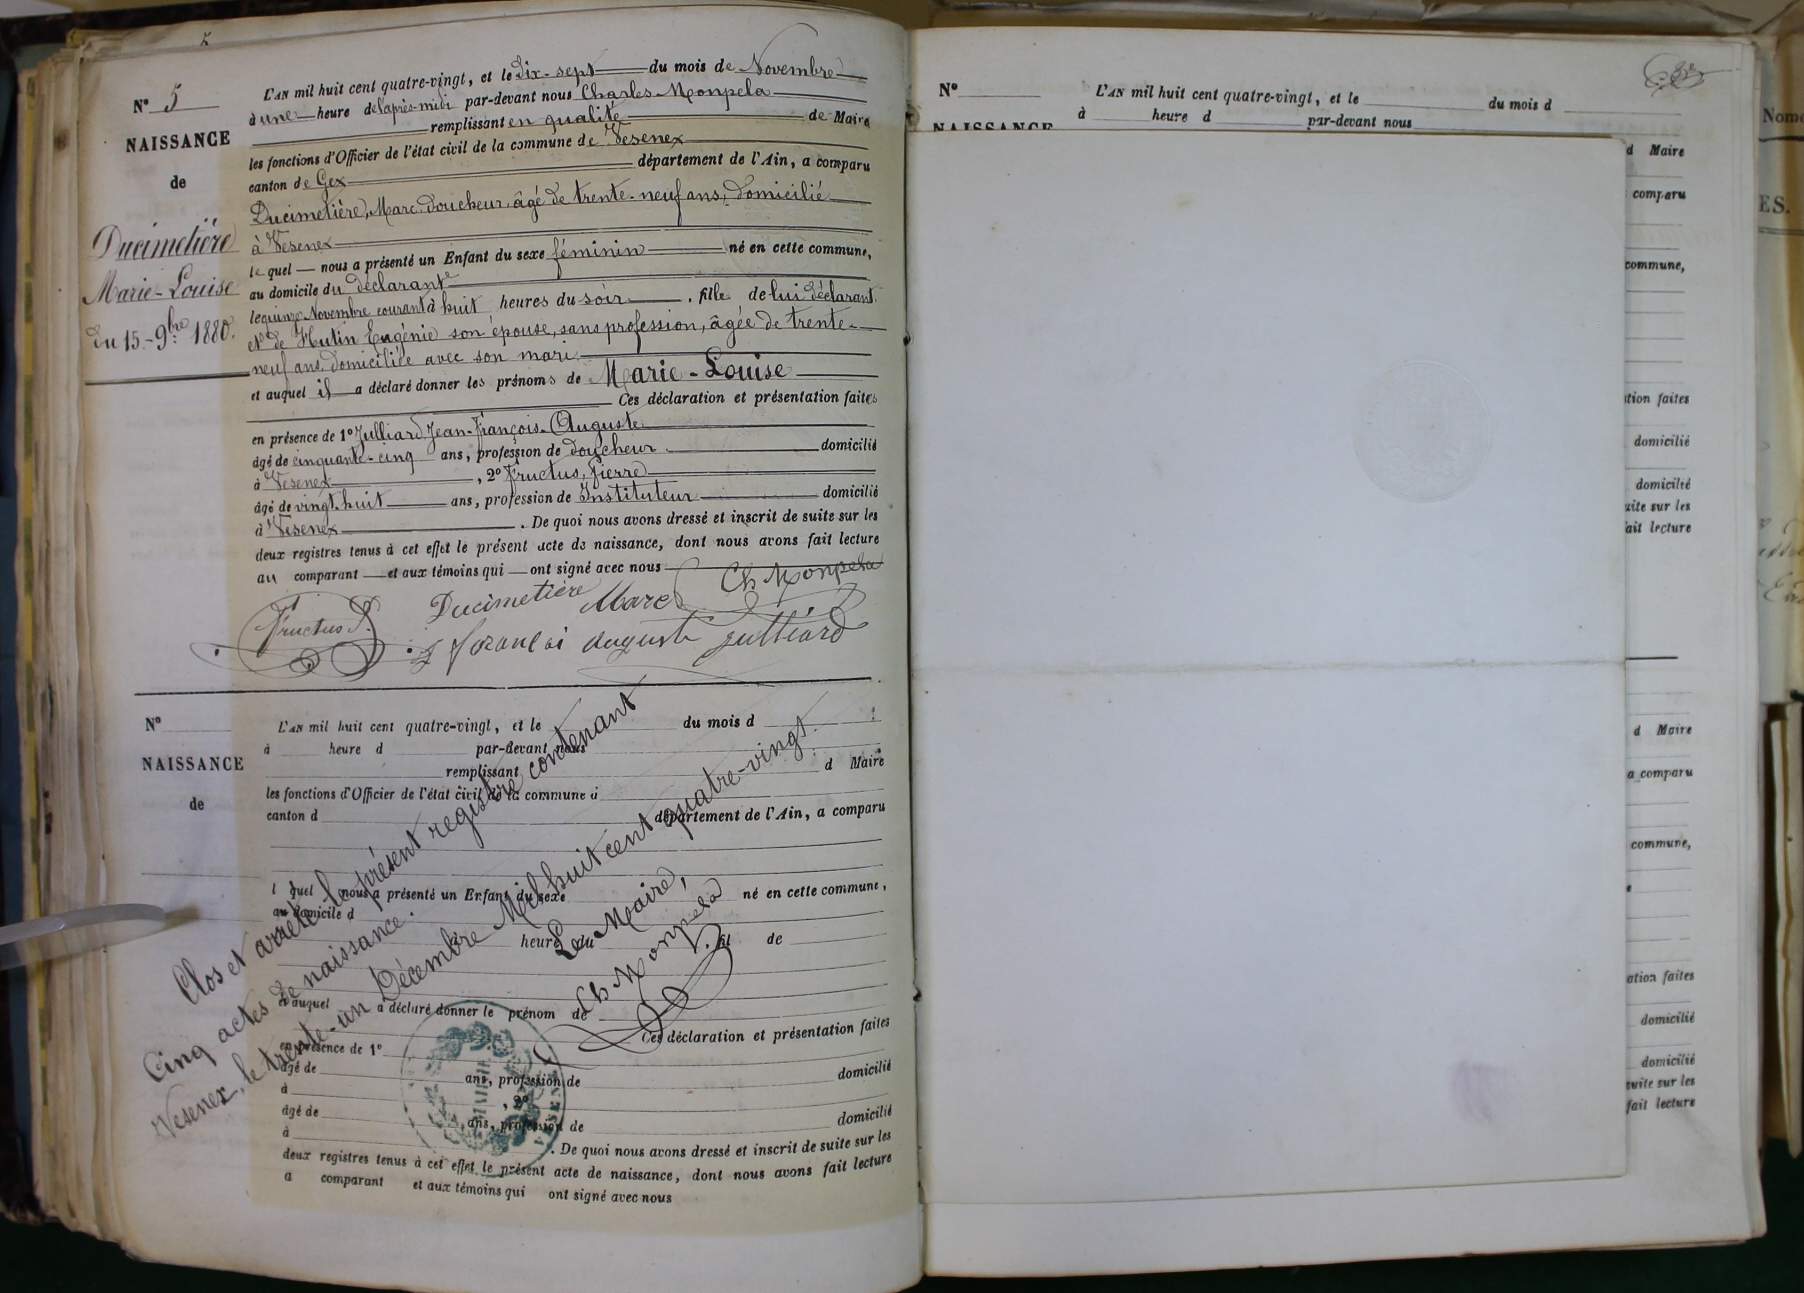 5
N° 5
NAISSANCE
de
Ducimetière
Marie-Louise
du 15-9bre 1880.
L'AN mil huit cent quatre-vingt, et le dix-sept du mois de Novembre
à une heure de l'après-midi par-devant nous Charles Monpela
remplissant en qualité de Maire
les fonctions d'Officier de l'état civil de la commune de Vesenex
canton de Gex département de l'Ain, a comparu
Ducimetière, Marc, doucheur, âgé de trente-neuf ans, domicilié
à Vesenex
lequel nous a présenté un Enfant du sexe féminin né en cette commune,
au domicile du déclarant
le quinze Novembre courant à huit heures du soir, fille de lui déclarant
et de Hutin Eugénie son épouse, sans profession, âgée de trente-
neuf ans, domiciliée avec son mari
et auquel il a déclaré donner les prénoms de Marie-Louise
Ces déclaration et présentation faites
en présence de 1° Julliard Jean-François-Auguste
âgé de cinquante-cinq ans, profession de doucheur domicilié
à Vesenex, 2° Fructus, Pierre
âgé de vingt-huit ans, profession de Instituteur domicilié
à Vesenex. De quoi nous avons dressé et inscrit de suite sur les
deux registres tenus à cet effet le présent acte de naissance, dont nous avons fait lecture
au comparant et aux témoins qui ont signé avec nous
Ch Monpela
Ducimetière Marc
Fructus P.
auguste julliard
N°
NAISSANCE
de
L'AN mil huit cent quatre-vingt, et le du mois d
à heure d par-devant nous
remplissant d Maire
les fonctions d'Officier de l'état civil de la commune d
canton d département de l'Ain, a comparu
l quel nous a présenté un Enfant du sexe né en cette commune,
au domicile d
heure du , fil de
et auquel a déclaré donner le prénom de
Ces déclaration et présentation faites
en présence de 1°
âgé de ans, profession de domicilié
à , 2°
âgé de ans, profession de domicilié
à . De quoi nous avons dressé et inscrit de suite sur les
deux registres tenus à cet effet le présent acte de naissance, dont nous avons fait lecture
a comparant et aux témoins qui ont signé avec nous
Clos et arrêté le présent registre contenant
Cinq actes de naissance.
Vesenex, le trente-un Décembre Mil huit cent quatre-vingt.
Le Maire,
Ch Monpela
MAIRIE
N°
NAISSANCE
L'AN mil huit cent quatre-vingt, et le du mois d
à heure d par-devant nous
d Maire
comparu
commune,
tion faites
domicilié
domicilié
uite sur les
fait lecture
d Maire
a comparu
commune,
ation faites
domicilié
domicilié
suite sur les
fait lecture
Nom
ES.